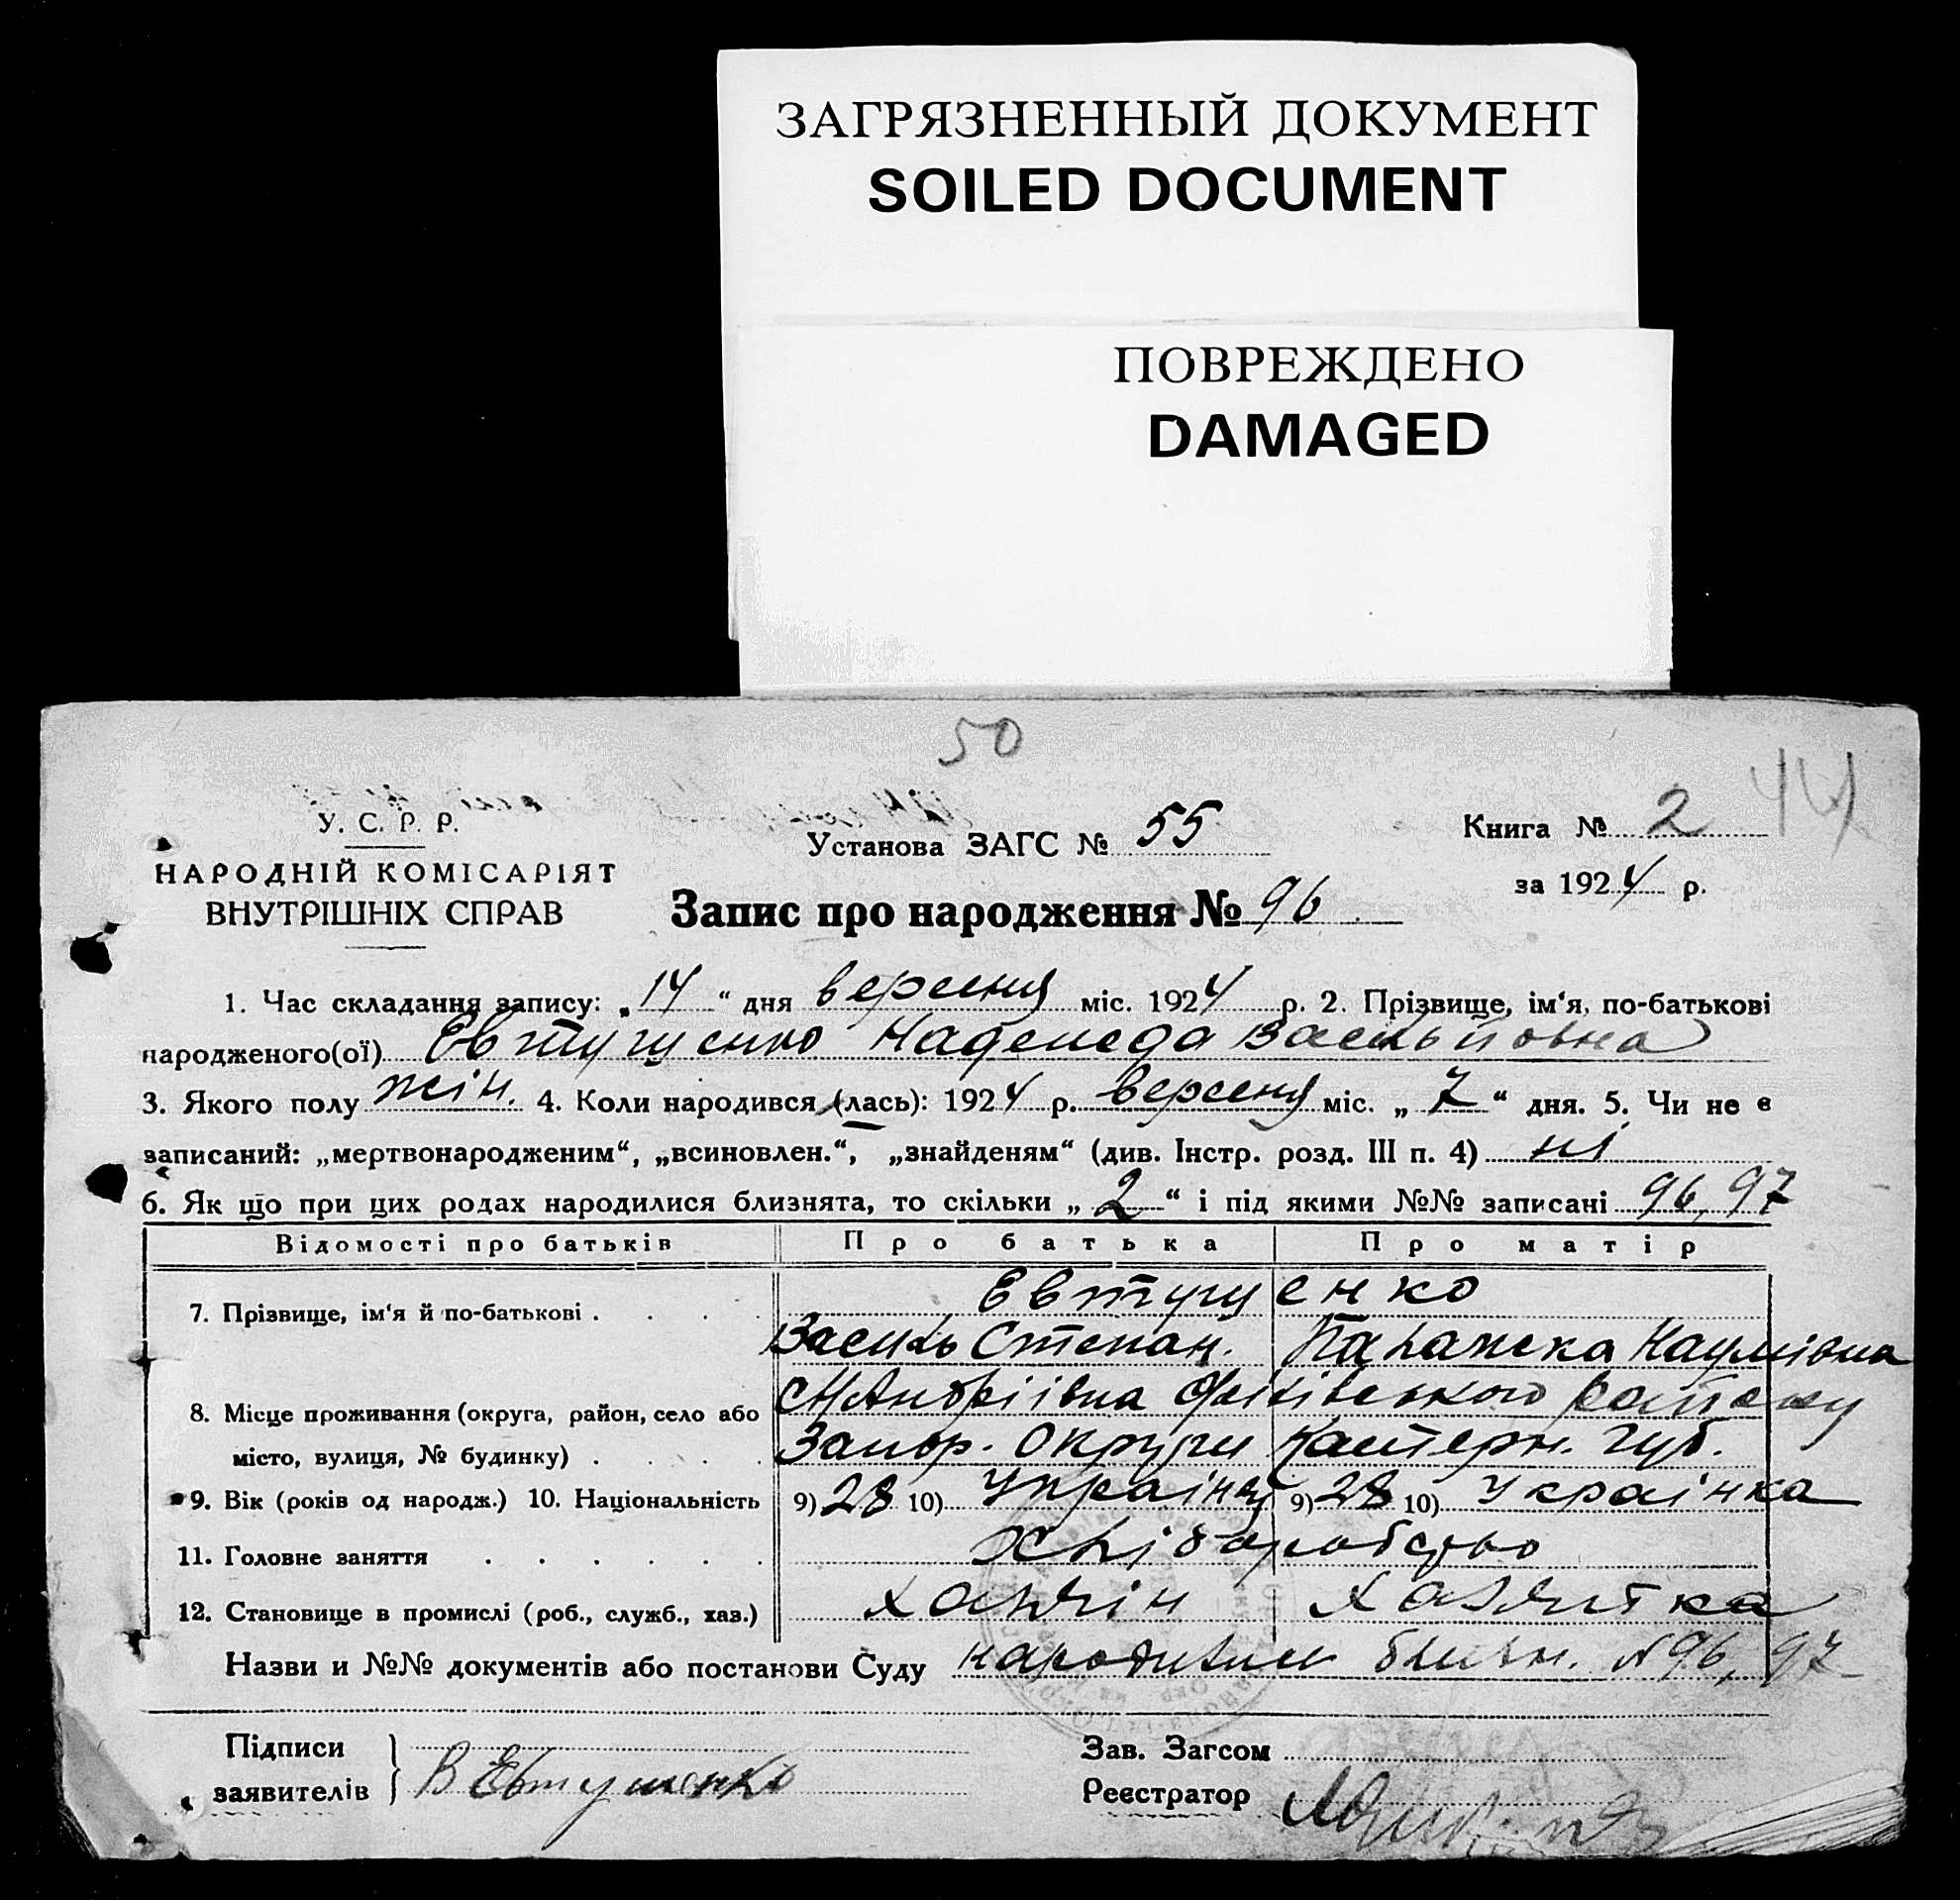 ЗАГРЯЗНЕННЫЙ ДОКУМЕНТ
SOILED DOCUMENT
ПОВРЕЖДЕНО
DAMAGED
50
44
У. С. Р. Р.
НАРОДНІЙ КОМІСАРІЯТ
ВНУТРІШНІХ СПРАВ
Установа ЗАГС № 55
Книга № 2
за 1924 р.
Запис про народження № 96
1. Час складання запису: „14“ дня вересня міс. 1924 р. 2. Прізвище, ім‘я, по-батькові
народженого(ої) Евтушенко Надежда Васильйовна
3. Якого полу жін. 4. Коли народився (лась): 1924 р. вересня міс. „7“ дня. 5. Чи не є
записаний: „мертвонародженим“, „всиновлен.“, „знайденям“ (див. Інстр. розд. III п. 4) ні
6. Як що при цих родах народилися близнята, то скільки „2“ і під якими №№ записані 96, 97
Відомості про батьків Про батька Про матір
7. Прізвище, ім‘я й по-батькові . Евтушенко
Василь Степан. Параска Наумівна
8. Місце проживання (округа, район, село або
місто, вулиця, № будинку) . Запор. Округи Катерн. Губ.
9. Вік (років од народж.) 10. Національність 9) 28 10) Українец 9) 28 10) Українка
11. Головне заняття Хліборобство
12. Становище в промислі (роб., служб., хаз.) хазяїн хазяйка
Назви и №№ документів або постанови Суду народились близн. №96, 97
Підписи
заявителів В Евтушенко
Зав. Загсом
Реєстратор